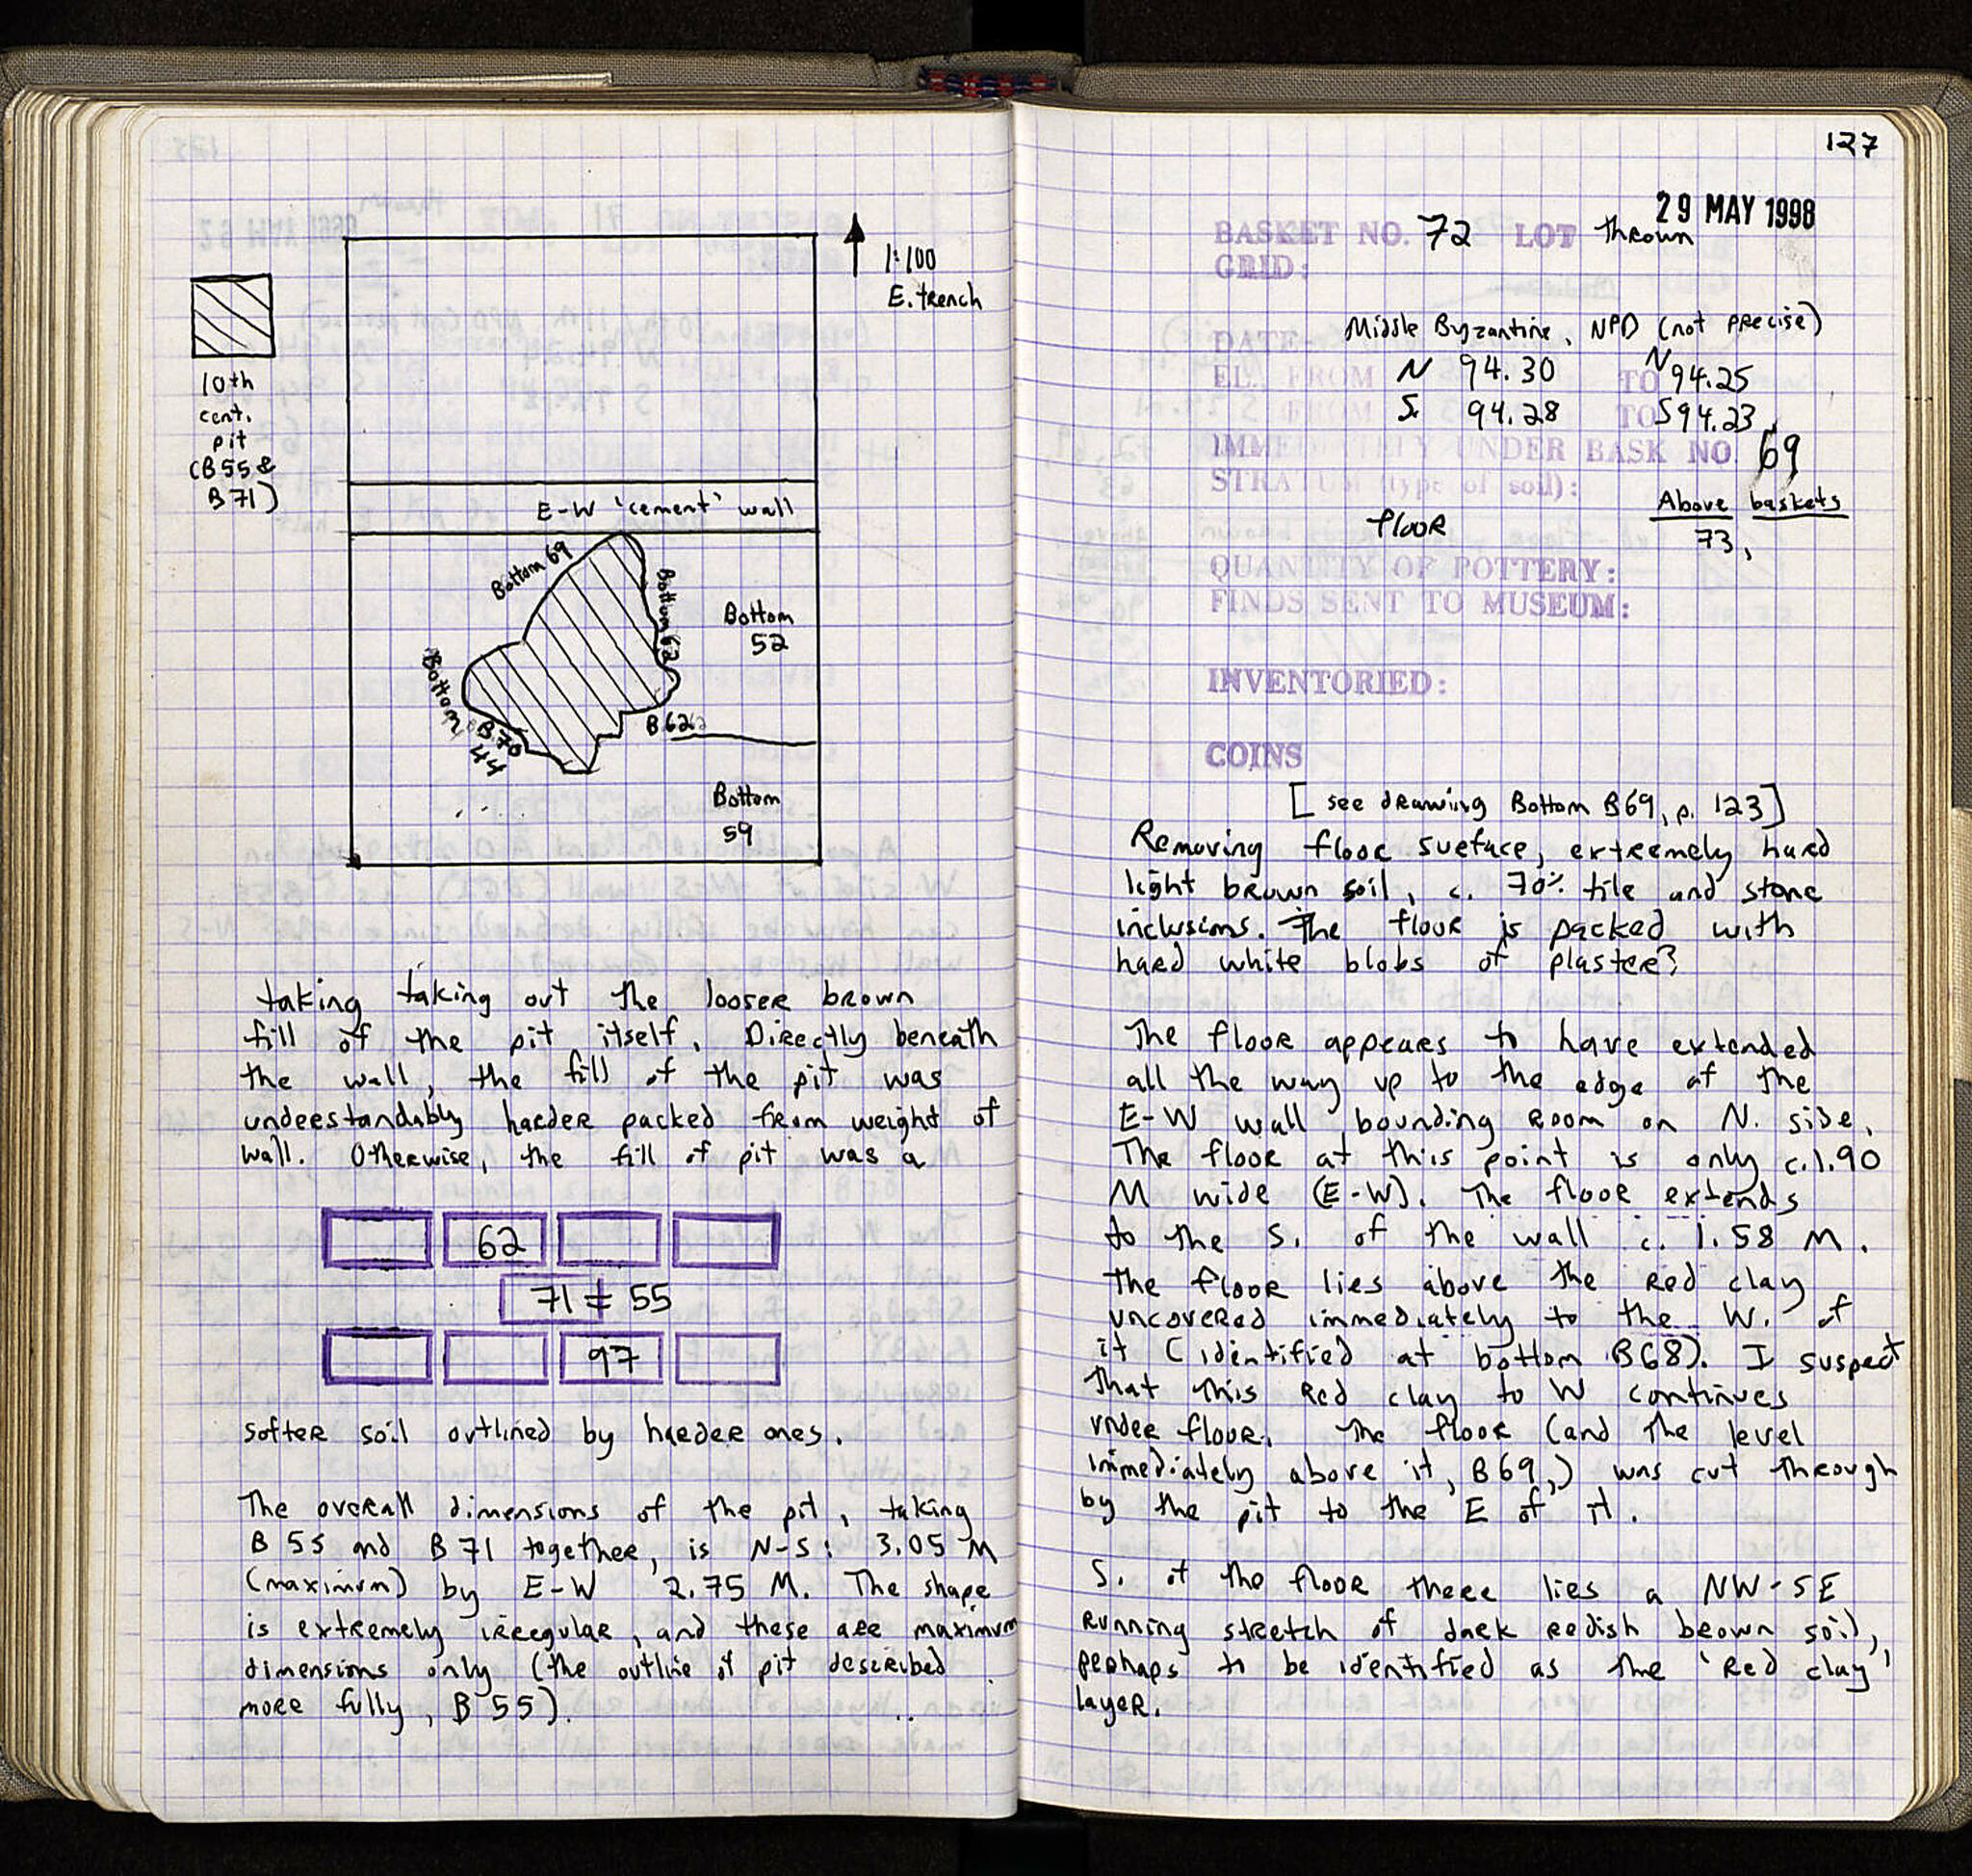 1:100
E. trench
10th
cent.
pit
(B55 &
B71)
E-W 'cement' wall
Bottom 69
Bottom 62
Bottom
52
Bottom
B.70
44
B62
Bottom
59
taking taking out the looser brown
fill of the pit itself. Directly beneath
the wall, the fill of the pit was
understandably harder packed from weight of
wall. Otherwise, the fill of pit was a
62
71 = 55
97
softer soil outlined by harder ones.
The overall dimensions of the pit, taking
B 55 and B 71 together, is N-S: 3.05 M
(maximum) by E-W 2.75 M. The shape
is extremely irregular, and these are maximum
dimensions only (the outline of pit described
more fully, B 55).
127
29 MAY 1998
BASKET NO. 72 LOT thrown
GRID:
Middle Byzantine, NPD (not precise)
DATE
EL., FROM N 94.30 TO N 94.25
S 94.28 TO S 94.23
IMMEDIATELY UNDER BASK NO. 69
STRATUM (type of soil):
Above baskets
floor
73,
QUANTITY OF POTTERY:
FINDS SENT TO MUSEUM:
INVENTORIED:
COINS
[see drawing Bottom B69, p. 123]
Removing floor surface, extremely hard
light brown soil, c. 70% tile and stone
inclusions. The floor is packed with
hard white blobs of plaster?
The floor appears to have extended
all the way up to the edge of the
E-W wall bounding room on N. side.
The floor at this point is only c.1.90
M wide (E-W). The floor extends
to the S. of the wall c. 1.58 M.
The floor lies above the red clay
uncovered immediately to the W. of
it (identified at bottom B68). I suspect
that this red clay to W continues
under floor. The floor (and the level
immediately above it, B69,) was cut through
by the pit to the E of it.
S. of the floor there lies a NW-SE
running stretch of dark redish brown soil,
perhaps to be identified as the 'red clay'
layer.